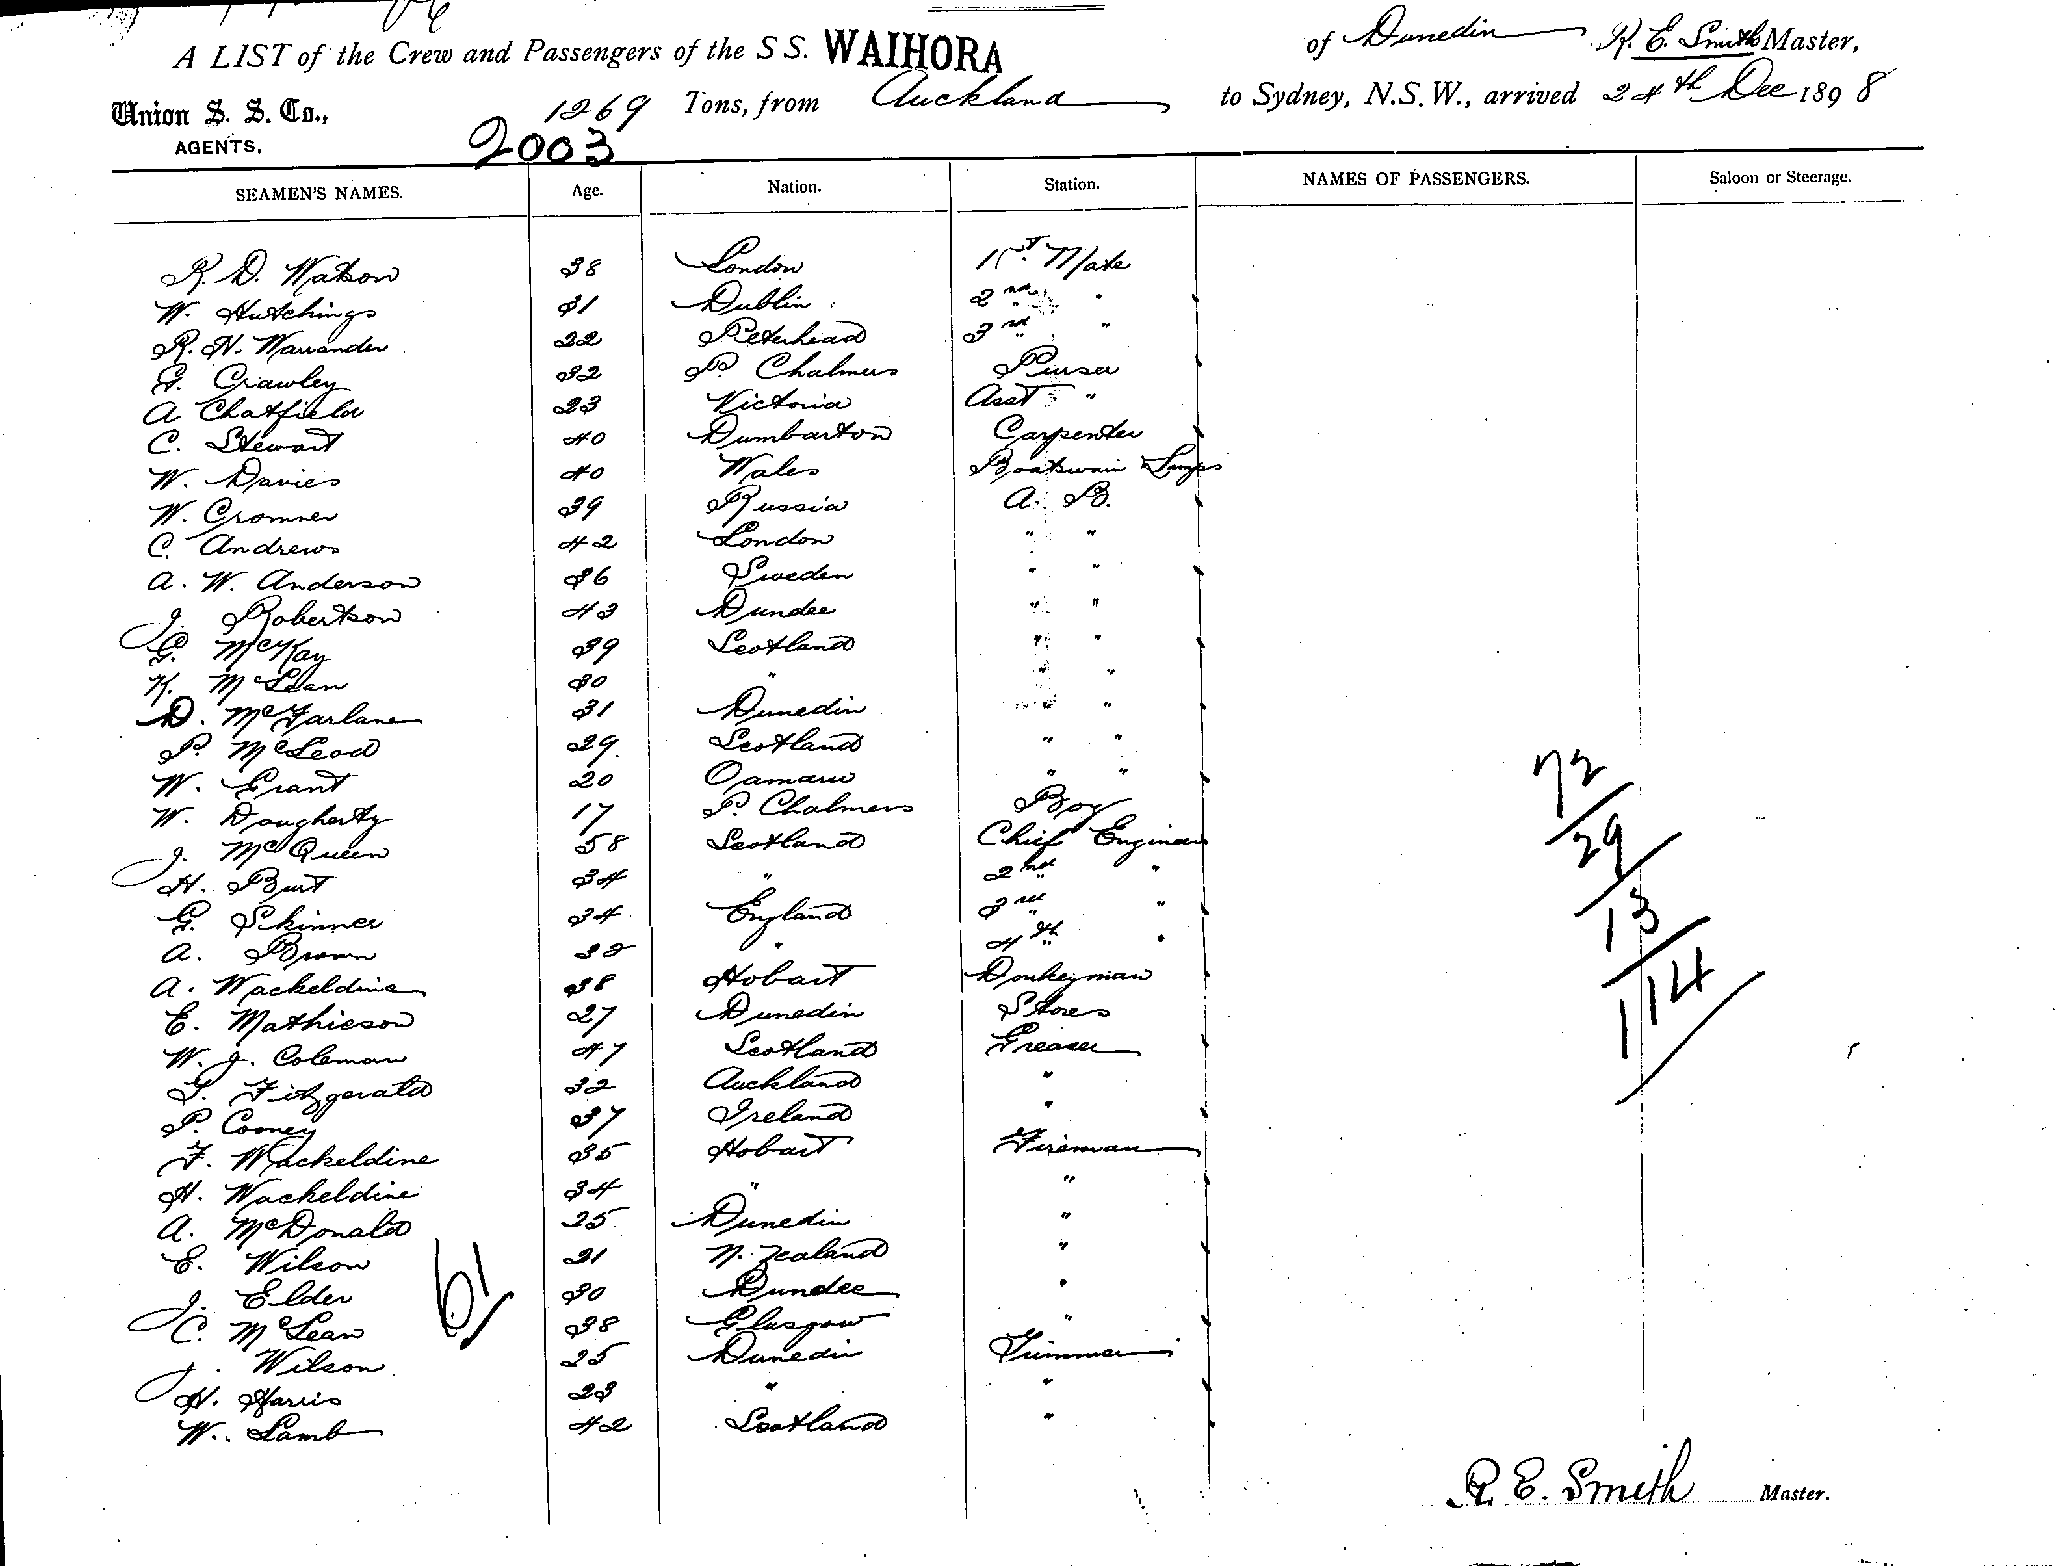 A LIST of the Crew and Passengers of the S S. WAIHORA of Dunedin R. E. Smith Master,
Union S. S. Co., 1269 Tons, from Auckland to Sydney, N.S.W., arrived 24th Dec 1898
AGENTS. 2003
SEAMEN'S NAMES. Age. Nation. Station. NAMES OF PASSENGERS. Saloon or Steerage.
R. D. Watson 38 London 1st Mate
W. Hutchings 31 Dublin 2nd "
R. H. Warrander 22 Peterhead 3rd "
G. Crawley 32 P. Chalmers Purser
A Chatfield 23 Victoria Asst "
C. Stewart 40 Dumbarton Carpenter
W. Davies 40 Wales Boatswain & Lamps
W. Cromner 39 Russia A. B.
C. Andrews 42 London " "
A. W. Anderson 36 Sweden " "
J. Robertson 43 Dundee " "
G. McKay 39 Scotland " "
K. McLean 30 " " "
D. McFarlane 31 Dunedin " "
P. McLeod 29 Scotland " "
W. Grant 20 Oamaru " "
W. Dougherty 17 P. Chalmers Boy
J. McQueen 58 Scotland Chief Engineer
H. Burt 34 " 2nd "
G. Skinner 34 England 3rd "
A. Brown 32 " 4th "
A. Wackeldine 38 Hobart Donkeyman
E. Mathieson 27 Dunedin Stores
W. J. Coleman 47 Scotland Greaser
T. Fitzgerald 32 Auckland "
P. Cooney 37 Ireland "
F. Wackeldine 35 Hobart Fireman
H. Wackeldine 34 " "
A. McDonald 25 Dunedin "
E. Wilson 21 N. Zealand "
J. Elder 30 Dundee "
C. McLean 38 Glasgow "
J. Wilson 25 Dunedin Trimmer
H. Harris 23 " "
W. Lamb 42 Scotland "
61
72
29
13
114
R. E. Smith Master.